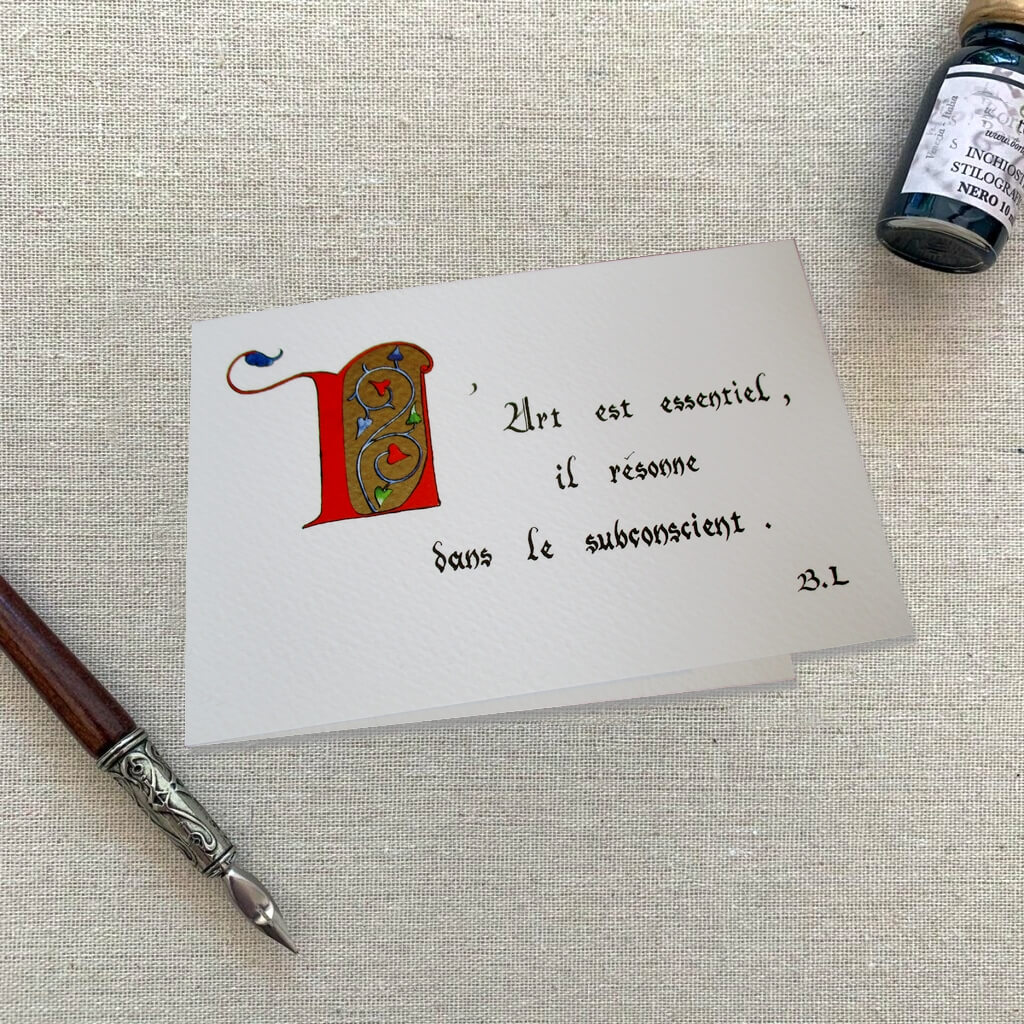 L'Art est essentiel,
il résonne
dans le subconscient.
B.L
Venezia - Italia
INCHIOST
STILOGRAF
NERO 10 m